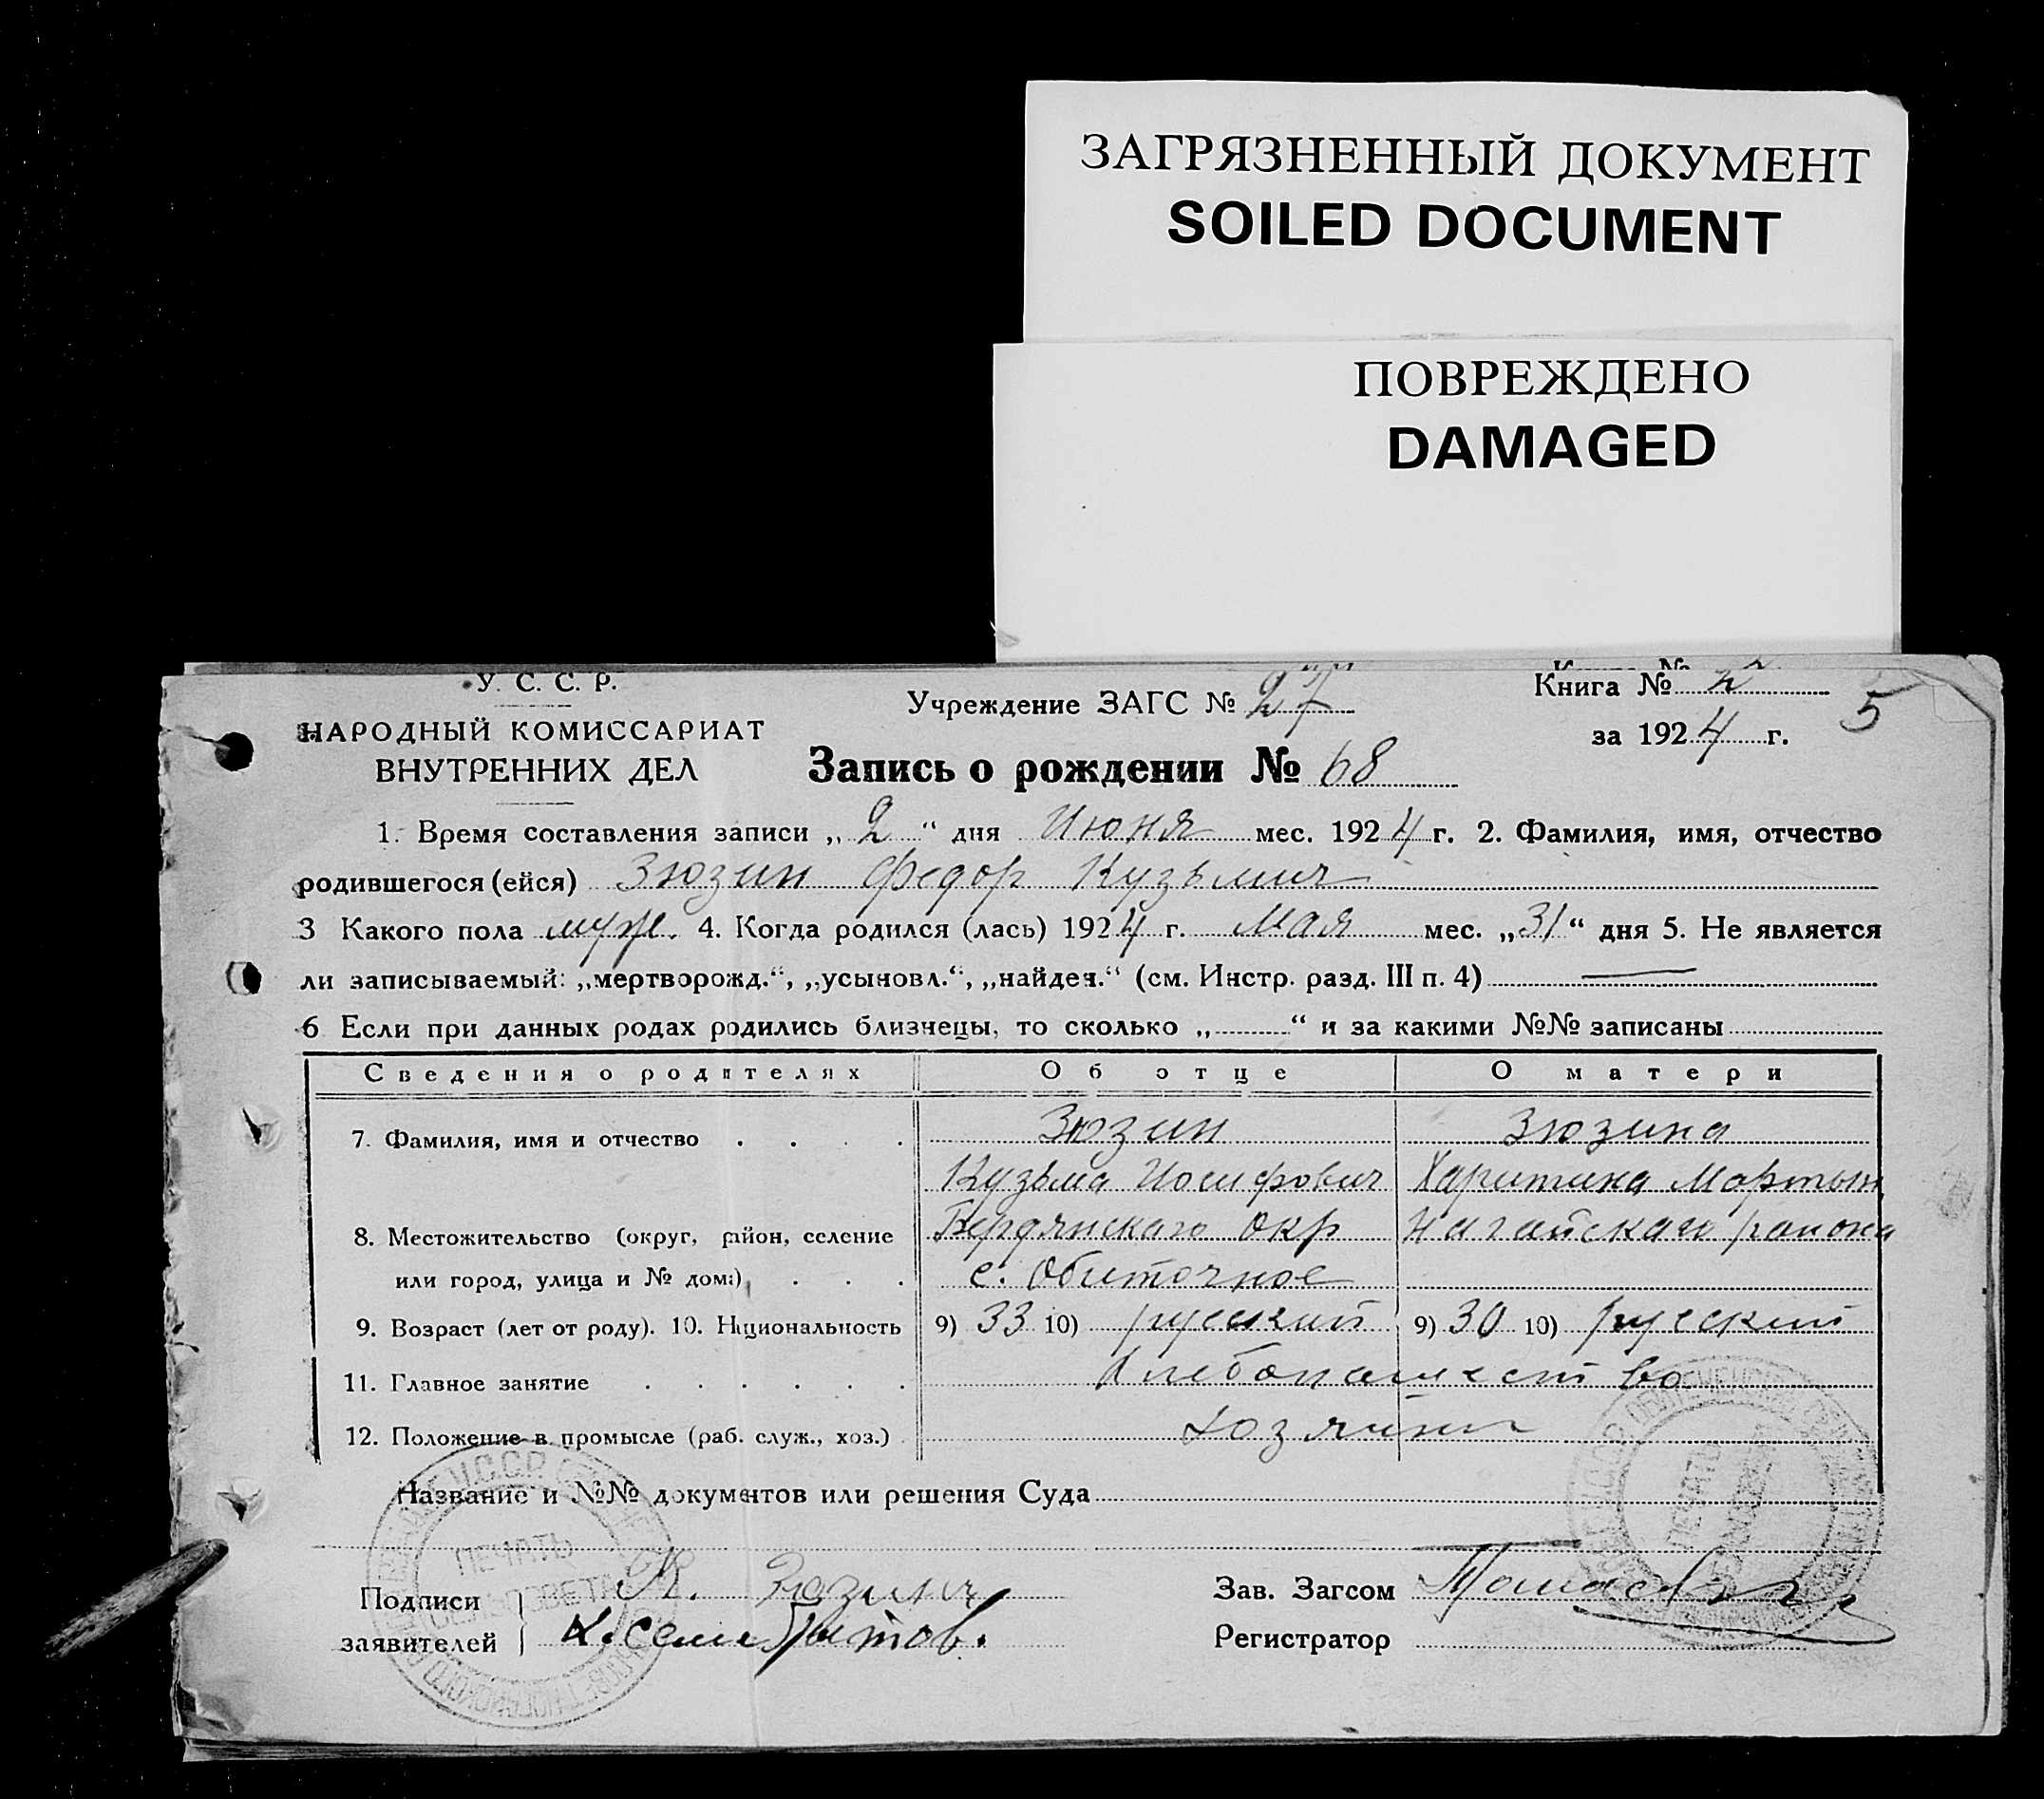 ЗАГРЯЗНЕННЫЙ ДОКУМЕНТ
SOILED DOCUMENT
ПОВРЕЖДЕНО
DAMAGED
У. С. С. Р.
НАРОДНЫЙ КОМИССАРИАТ
ВНУТРЕННИХ ДЕЛ
Учреждение ЗАГС № 27
Книга № 2
за 1924 г.
5
Запись о рождении № 68
1. Время составления записи „2“ дня Июня мес. 1924 г. 2. Фамилия, имя, отчество
родившегося (ейся) Зюзин Федор Кузьмич
3 Какого пола муж. 4. Когда родился (лась) 1924 г. Мая мес. „31“ дня 5. Не является
ли записываемый: „мертворожд.“, „усыновл.“, „найден.“ (см. Инстр. разд. III п. 4) —
6 Если при данных родах родились близнецы, то сколько „ “ и за какими №№ записаны
Сведения о родителях Об отце О матери
7. Фамилия, имя и отчество Зюзин Зюзина
Кузьма Иосифович Харитина Мартын
8. Местожительство (округ, район, селение Бердянскаго окр Нагайскаго района
или город, улица и № дома) с. Обиточное
9. Возраст (лет от роду). 10. Национальность 9) 33 10) русский 9) 30 10) русский
11. Главное занятие Хлебопашество
12. Положение в промысле (раб. служ., хоз.) хозяин
Название и №№ документов или решения Суда
Подписи К. Зюзин
заявителей
Зав. Загсом
Регистратор
ПЕЧАТЬ